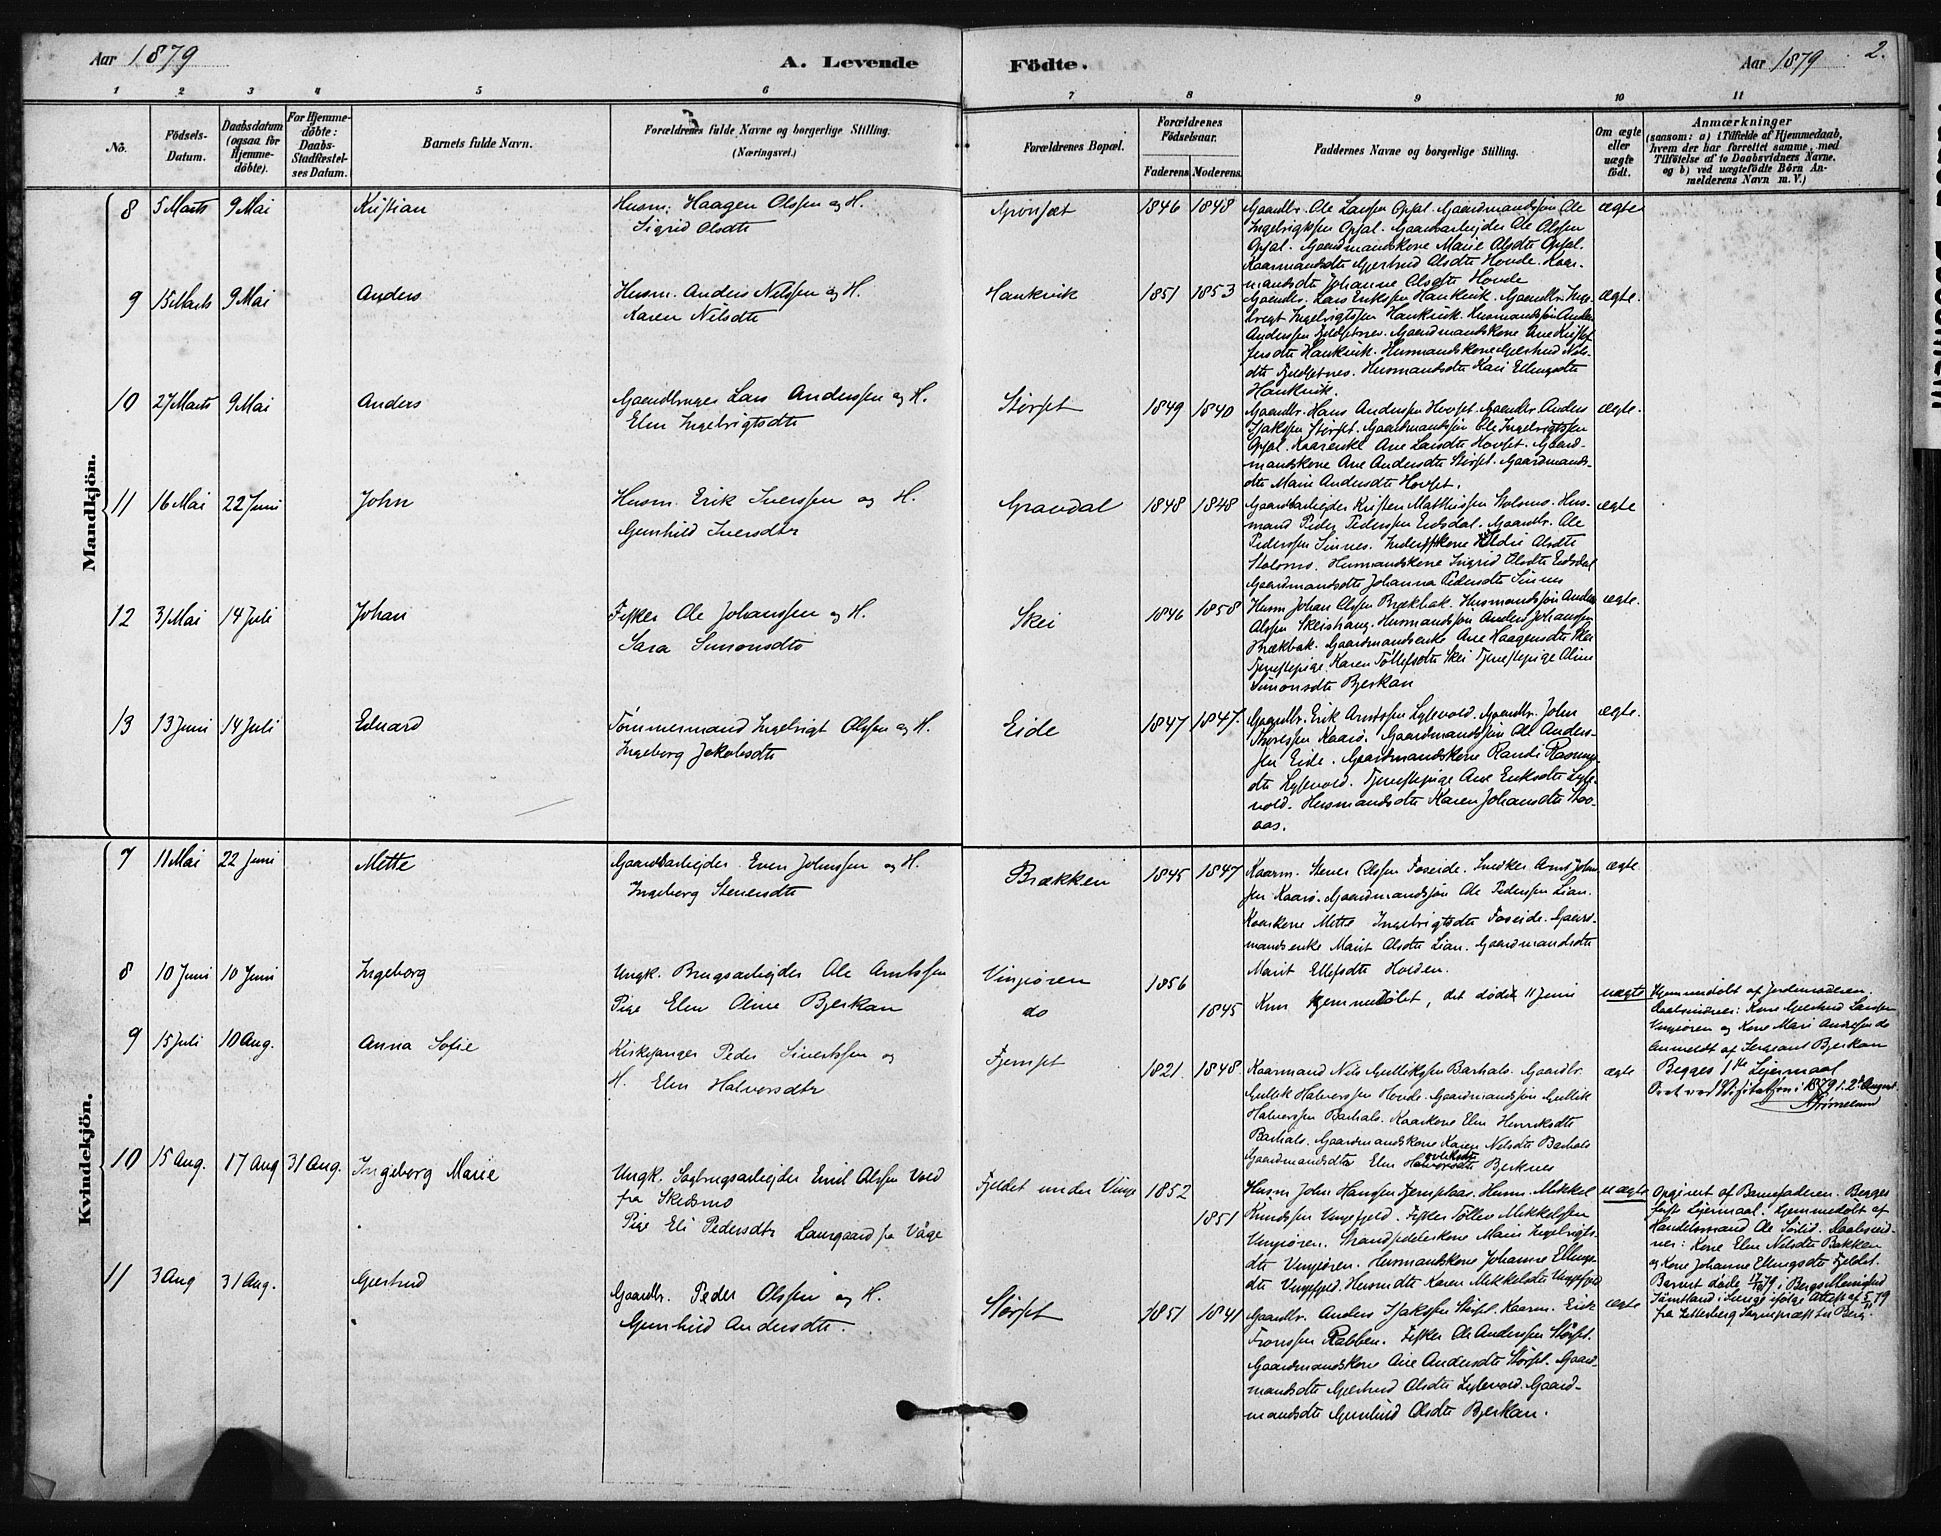 Aar 1879
A. Levende
Födte.
Aar 1879
2.
1 2 3 4 5 6 7 8 9 10 11
No.
Födsels-
Datum.
Daabsdatum
(ogsaa for
Hjemme-
döbte).
For Hjemme-
döbte:
Daabs-
Stadfæstel-
ses Datum.
Barnets fulde Navn.
Forældrenes fulde Navne og borgerlige Stilling.
(Næringsvei.)
Forældrenes Bopæl.
Forældrenes
Födselsaar.
Faderens Moderens
Faddernes Navne og borgerlige Stilling.
Om ægte
eller
uægte
födt.
Anmærkninger
(saasom: a) i Tilfælde af Hjemmedaab,
hvem der har forrettet samme, med
Tilföielse af to Daabsvidners Navne,
og b) ved uægtefödte Börn An-
melderens Navn m. V.)
Mandkjön.
8 5 Marts 9 Mai Kristian
Husm. Haagen Olssen og H.
Sigrid Olsdtr
Grönset 1846 1848
Gaardbr. Ole Larssen Opsal. Gaardmandssön Ole
Ingebrigtssen Opsal. Gaardsarbejder Ole Olssen
Opsal. Gaardmandskone Marie Olsdtr Opsal.
Kaarmandsdtr Gjertrud Olsdtr Hovde. Kaar-
mandsdtr Johanne Olsdtr Hovde
ægte
9 15 Marts 9 Mai Anders
Husm. Anders Nilssen og H.
Karen Nilsdtr
Hankvik 1851 1853
Gaardbr. Lars Erikssen Hankvik. Gaardbr. Inge-
brigt Ingebrigtssen Hankvik. Husmandssön Anders
Anderssen Fjeldsetnes. Gaardmandskone Ane Kristof-
fersdtr Hankvik. Husmandskone Gjertrud Nils-
dtr Fjeldsetnes. Husmandsdtr Kari Ellingsdtr
Hankvik.
ægte.
10 27 Marts 9 Mai Anders
Gaardbruger Lars Anderssen og H.
Elen Ingebrigtsdtr
Störset 1849 1840
Gaardbr. Hans Anderssen Hovset. Gaardbr. Anders
Isakssen Störset. Gaardmandssön Ole Ingebrigtssen
Opsal. Kaarenke Ane Larsdtr Hovset. Gaard-
mandskone Ane Andersdtr Störset. Gaardmands-
dtr Marie Andersdtr Hovset.
ægte.
11 16 Mai 22 Juni John
Husm. Erik Iverssen og H.
Gunhild Iversdtr
Grandal 1848 1848
Gaardsarbejder Kristen Mathiassen Stolsmo. Hus-
mand Peder Pederssen Eidsdal. Gaardbr. Ole
Pederssen Sinnes. Olsdtr
Stolsmo. Husmandskone Ingrid Olsdtr Eidsdal
Gaardmandsdtr Johanna Pedersdtr Sinnes
ægte
12 31 Mai 14 Juli Johan
Fisker Ole Johanssen og H.
Sara Simonsdtr
Skei 1846 1858
Husm. Johan Olssen Brækbak. Husmandssön Anders
Olssen Skeishaug. Husmandssön Anders Johanssen
Brækbak. Gaardmandsenke Ane Haagensdtr Skei
Tjenestepige Karen Töllefsdtr Skei Tjenestepige Oline
Simonsdtr Bjerkan
ægte.
13 13 Juni 14 Juli Edvard
Tömmermand Ingebrigt Olssen og H.
Ingeborg Jakobsdtr
Eide 1847 1847.
Gaardbr. Erik Arntssen Lysevold. Gaardbr. John
Kaarö. Gaardmandssön Ole Anders-
sen Eide. Gaardmandskone Randi Rasmus-
dtr Lysevold. Tjenestepige Ane Eriksdtr Lyse-
vold. Husmandsdtr Karen Johansdtr Sto-
aas.
ægte.
Kvindekjön.
7 11 Mai 22 Juni Mette
Gaardsarbejder Even Johnssen og H.
Ingeborg Steensdtr
Brækken 1845 1847
Kaarm. Olssen Foseide. Snedker Arnt John-
sen Kaarö. Gaardmandssön Ole Pederssen Lian.
Kaarkone Mette Ingebrigtsdtr Foseide. Gaard-
mandsenke Marit Olsdtr Lian. Gaardmandsdtr
Marit Ellefsdtr Holden.
ægte.
8 10 Juni 10 Juni Ingeborg
Ungk. Brugsarbejder Ole Arntssen
Pige Elen Oline Bjerkan
Vinjeören
do
1856
1845
Kun hjemmedöbt, det döde 11 Juni
uægte
Hjemmedöbt af Jordemoderen.
Daabsvidner: Kone Gjertrud Larssen
Vinjeören og Kone Mari do
Anmeldt af Sergeant Bjerkan
Begges 1ste Lejermaal
9 15 Juli 10 Aug. Anna Sofie
Kirkesanger Peder Sivertssen og
H. Elen Halvorsdtr
Fjemset 1821 1848
Kaarmand Nils Gullikssen Barhals. Gaardbr.
Gullik Halvorssen Hovde. Gaardmandssön Gullik
Halvorssen Barhals. Kaarkone Elen Henriksdtr
Barhals. Gaardmandskone Karen Nilsdtr Barhals
Gaardmandsdtr Elen Halvorsdtr Berknes
ægte
Visitatsen i 1879 2. August.
10 15 Aug. 17 Aug 31 Aug. Ingeborg Marie
Ungk. Sagbrugsarbejder Emil Olssen Vold
fra Skedsmo
Pige Eli Pedersdtr Laurgaard fra Våge
Fjeldet under Vinje 1852
1851
Husm John Hanssen Fjemsplass. Husm. Mikkel
Knudssen Vinjefjeld. Fisker Töllev Mikkelssen
Vinjeören. Strandsidderkone Marie Ingebrigts-
dtr Vinjeören. Husmandskone Johanne Ellings-
dtr Vinjefjeld. Husmdtr Karen Mikkelsdtr Vinjefjeld
uægte
Opgivet af Barnefaderen. Begges
förste Lejermaal. Hjemmedöbt af
Handelsmand Ole Sörlid. Daabsvid-
ner: Kone Elen Nilsdtr Bakken
og Kone Johanne Ellingsdtr Fjeldet.
Barnet döde i Bergs Menighed
Jämtland i Sverige ifölge Attest af 79
11 3 Aug 31 Aug. Gjertrud
Gaardbr. Peder Olssen og H.
Gunhild Andersdtr.
Störset 1851 1841
Gaardbr. Anders Isakssen Störset. Kaarm. Erik
Fronssen Rabben. Fisker Ole Anderssen Störset.
Gaardmandskone Ane Andersdtr Störset. Gaard-
mandsdtr Gjertrud Olsdtr Lysevold. Gaard-
mandsdtr Gunhild Olsdtr Bjerkan.
ægte